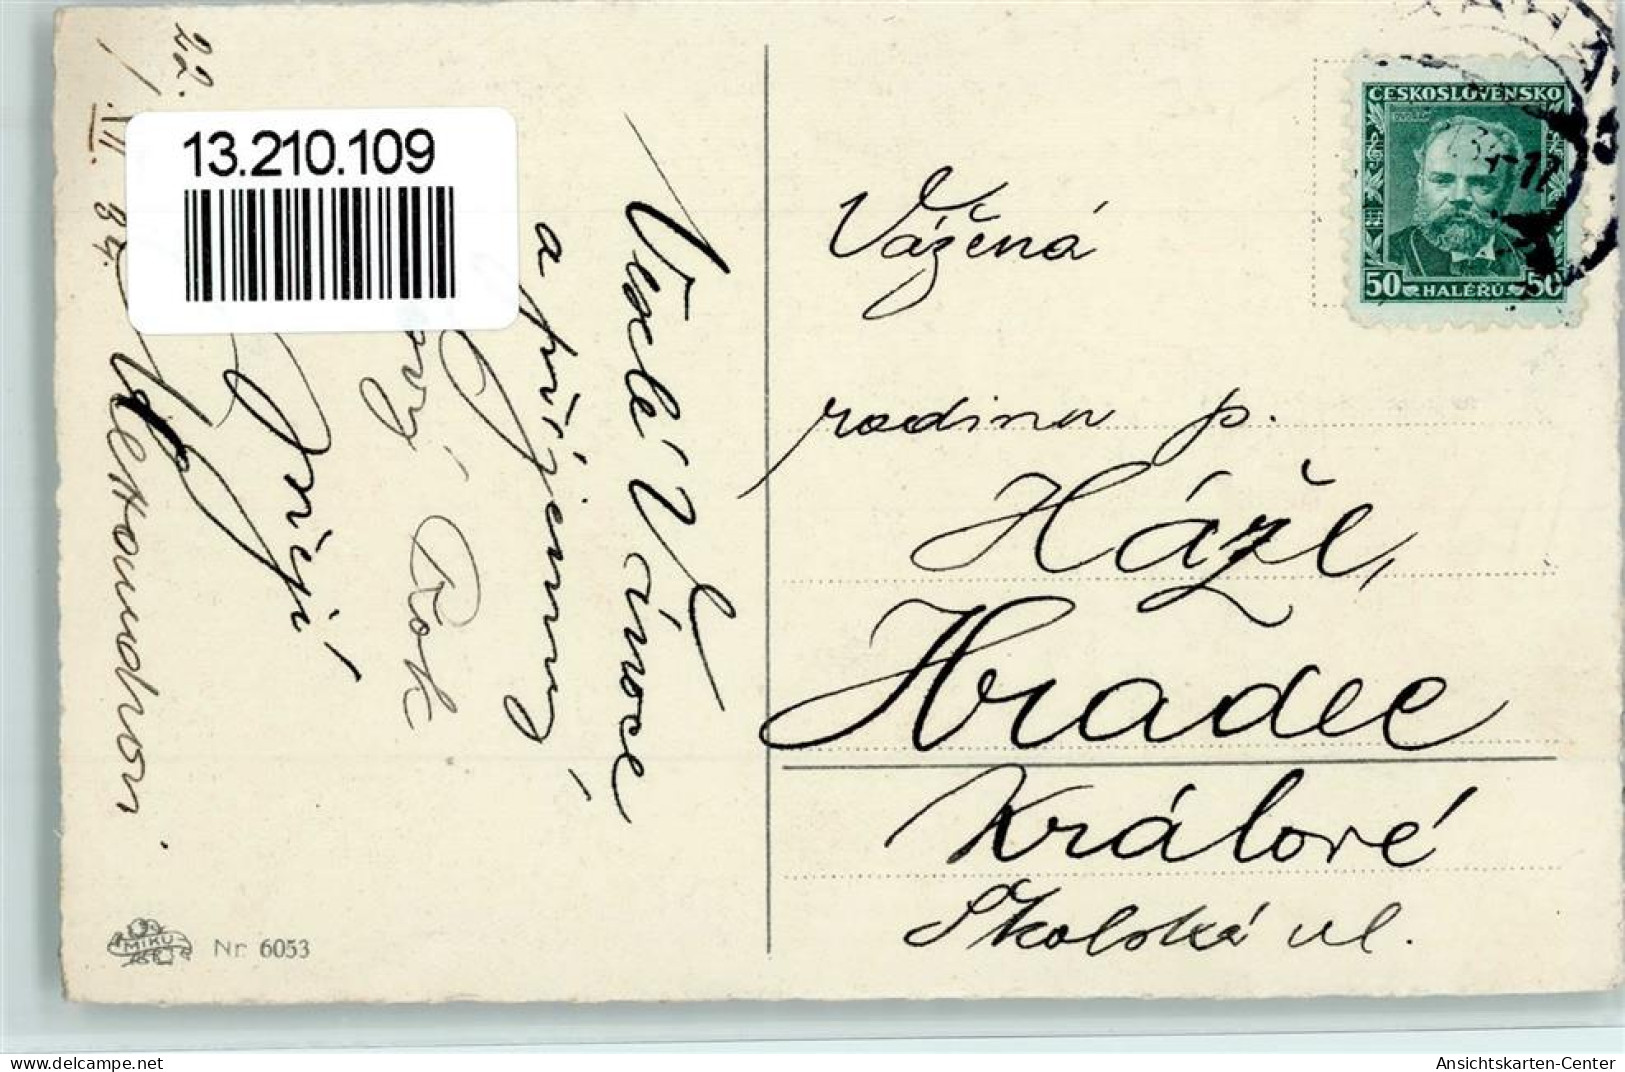 22.
XII. 34.
13.210.109
Veselé Vánoce
a příjemný
Rok
přejí
Vážená
rodina p.
Háže,
Hradec
Králové
Školská ul.
ČESKOSLOVENSKO
DVOŘÁK
50 HALÉŘŮ 50
MIKU
Nr. 6053
delcampe.net
Ansichtskarten-Center